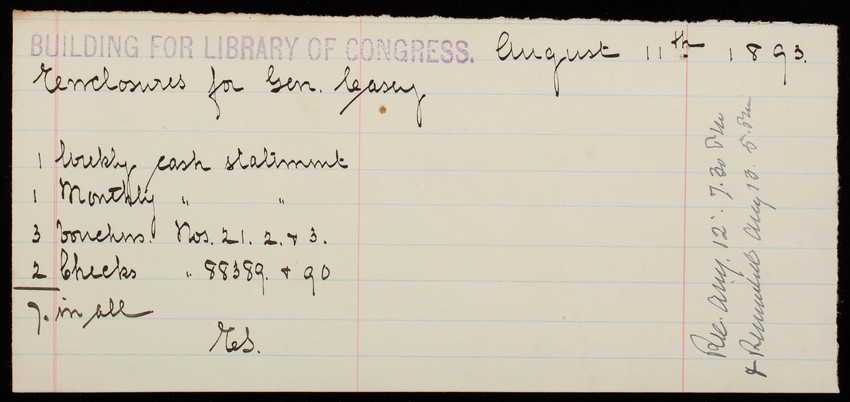 BUILDING FOR LIBRARY OF CONGRESS. August 11th 1893.
Enclosures for Gen. Casey
1 Weekly cash statement
1 Monthly " "
3 Vouchers. Nos. 21. 2. & 3.
2 Checks " 88389. & 90
7. in all
Rec. Aug. 12. 7.30 P.M.
& Remailed Aug 13. 5. P.M.